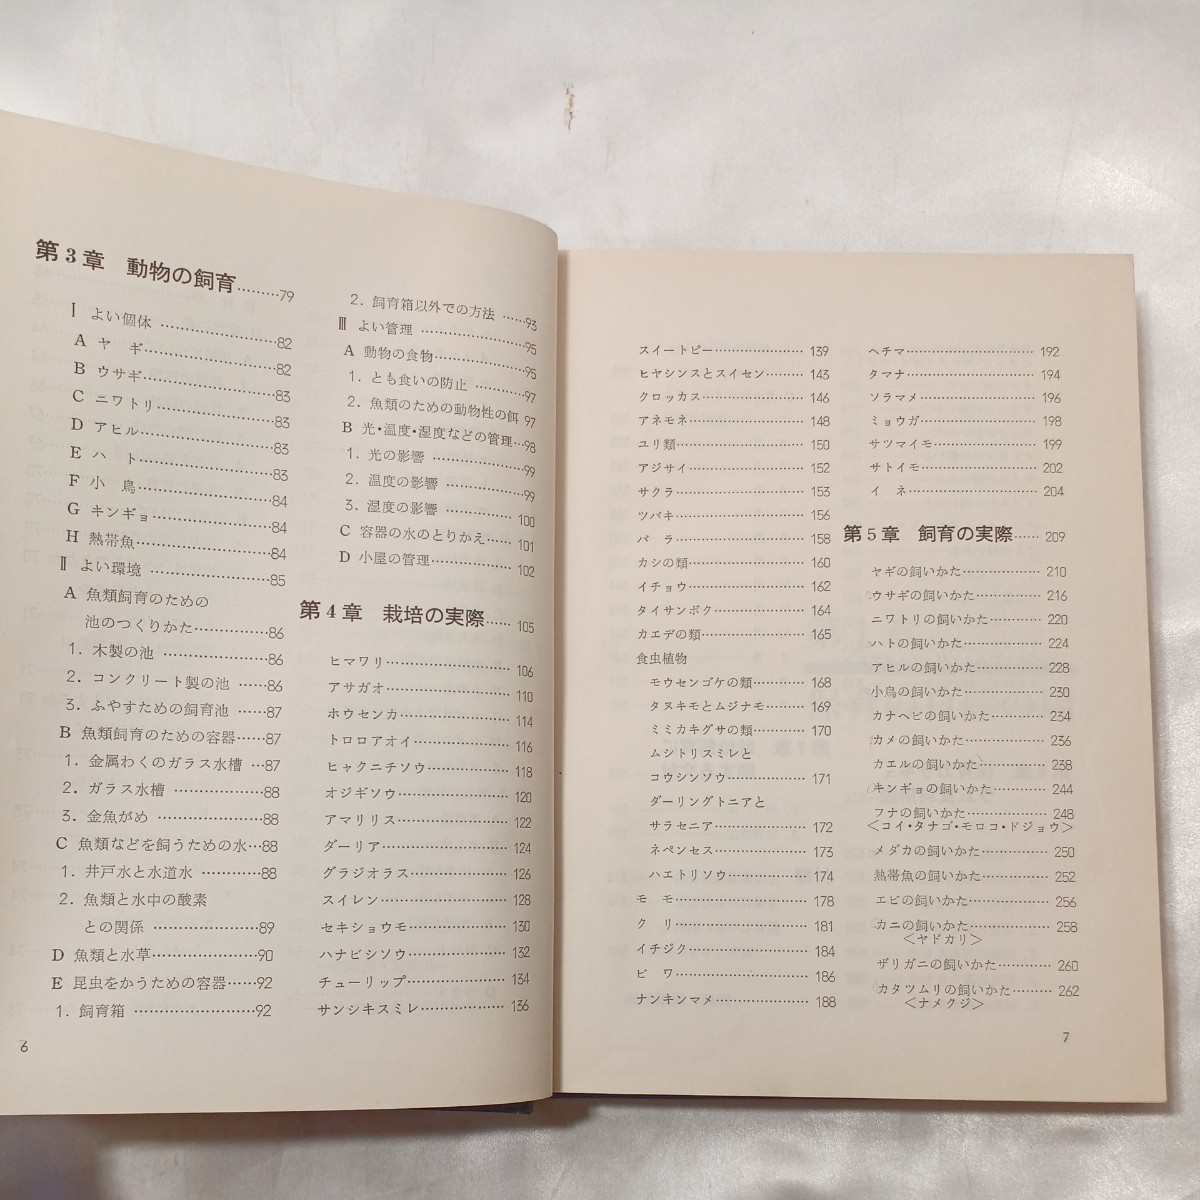 第3章 動物の飼育………79
Ⅰ よい個体………………82
A ヤ ギ………………82
B ウサギ………………83
C ニワトリ………………83
D アヒル………………83
E ハ ト………………83
F 小 鳥………………84
G キンギョ………………84
H 熱帯魚………………84
Ⅱ よい環境………………85
A 魚類飼育のための
池のつくりかた……………86
1. 木製の池………………86
2. コンクリート製の池……86
3. ふやすための飼育池……87
B 魚類飼育のための容器……87
1. 金属わくのガラス水槽…87
2. ガラス水槽……………88
3. 金魚がめ………………88
C 魚類などを飼うための水…88
1. 井戸水と水道水…………88
2. 魚類と水中の酸素
との関係………………89
D 魚類と水草………………90
E 昆虫をかうための容器……92
1. 飼育箱………………92
2. 飼育箱以外での方法……93
Ⅲ よい管理………………95
A 動物の食物………………95
1. とも食いの防止…………97
2. 魚類のための動物性の餌 97
B 光・温度・湿度などの管理…98
1. 光の影響………………99
2. 温度の影響……………99
3. 湿度の影響……………100
C 容器の水のとりかえ……101
D 小屋の管理………………102
第4章 栽培の実際……105
ヒマワリ………………106
アサガオ………………110
ホウセンカ………………114
トロロアオイ………………116
ヒャクニチソウ……………118
オジギソウ………………120
アマリリス………………122
ダーリア………………124
グラジオラス………………126
スイレン………………128
セキショウモ………………130
ハナビシソウ………………132
チューリップ………………134
サンシキスミレ……………136
6
スイートピー………………139
ヒヤシンスとスイセン………143
クロッカス………………146
アネモネ………………148
ユリ類………………150
アジサイ………………152
サクラ………………153
ツバキ………………156
バ ラ………………158
カシの類………………160
イチョウ………………162
タイサンボク………………164
カエデの類………………165
食虫植物
モウセンゴケの類…………168
タヌキモとムジナモ………169
ミミカキグサの類…………170
ムシトリスミレと
コウシンソウ……………171
ダーリングトニアと
サラセニア………………172
ネペンセス………………173
ハエトリソウ……………174
モ モ………………178
ク リ………………181
イチジク………………184
ビ ワ………………186
ナンキンマメ………………188
ヘチマ………………192
タマナ………………194
ソラマメ………………196
ミョウガ………………198
サツマイモ………………199
サトイモ………………202
イ ネ………………204
第5章 飼育の実際……209
ヤギの飼いかた……………210
ウサギの飼いかた…………216
ニワトリの飼いかた………220
ハトの飼いかた……………224
アヒルの飼いかた…………228
小鳥の飼いかた……………230
カナヘビの飼いかた………234
カメの飼いかた……………236
カエルの飼いかた…………238
キンギョの飼いかた………244
フナの飼いかた……………248
<コイ・タナゴ・モロコ・ドジョウ>
メダカの飼いかた…………250
熱帯魚の飼いかた…………252
エビの飼いかた……………256
カニの飼いかた……………258
<ヤドカリ>
ザリガニの飼いかた………260
カタツムリの飼いかた………262
<ナメクジ>
7